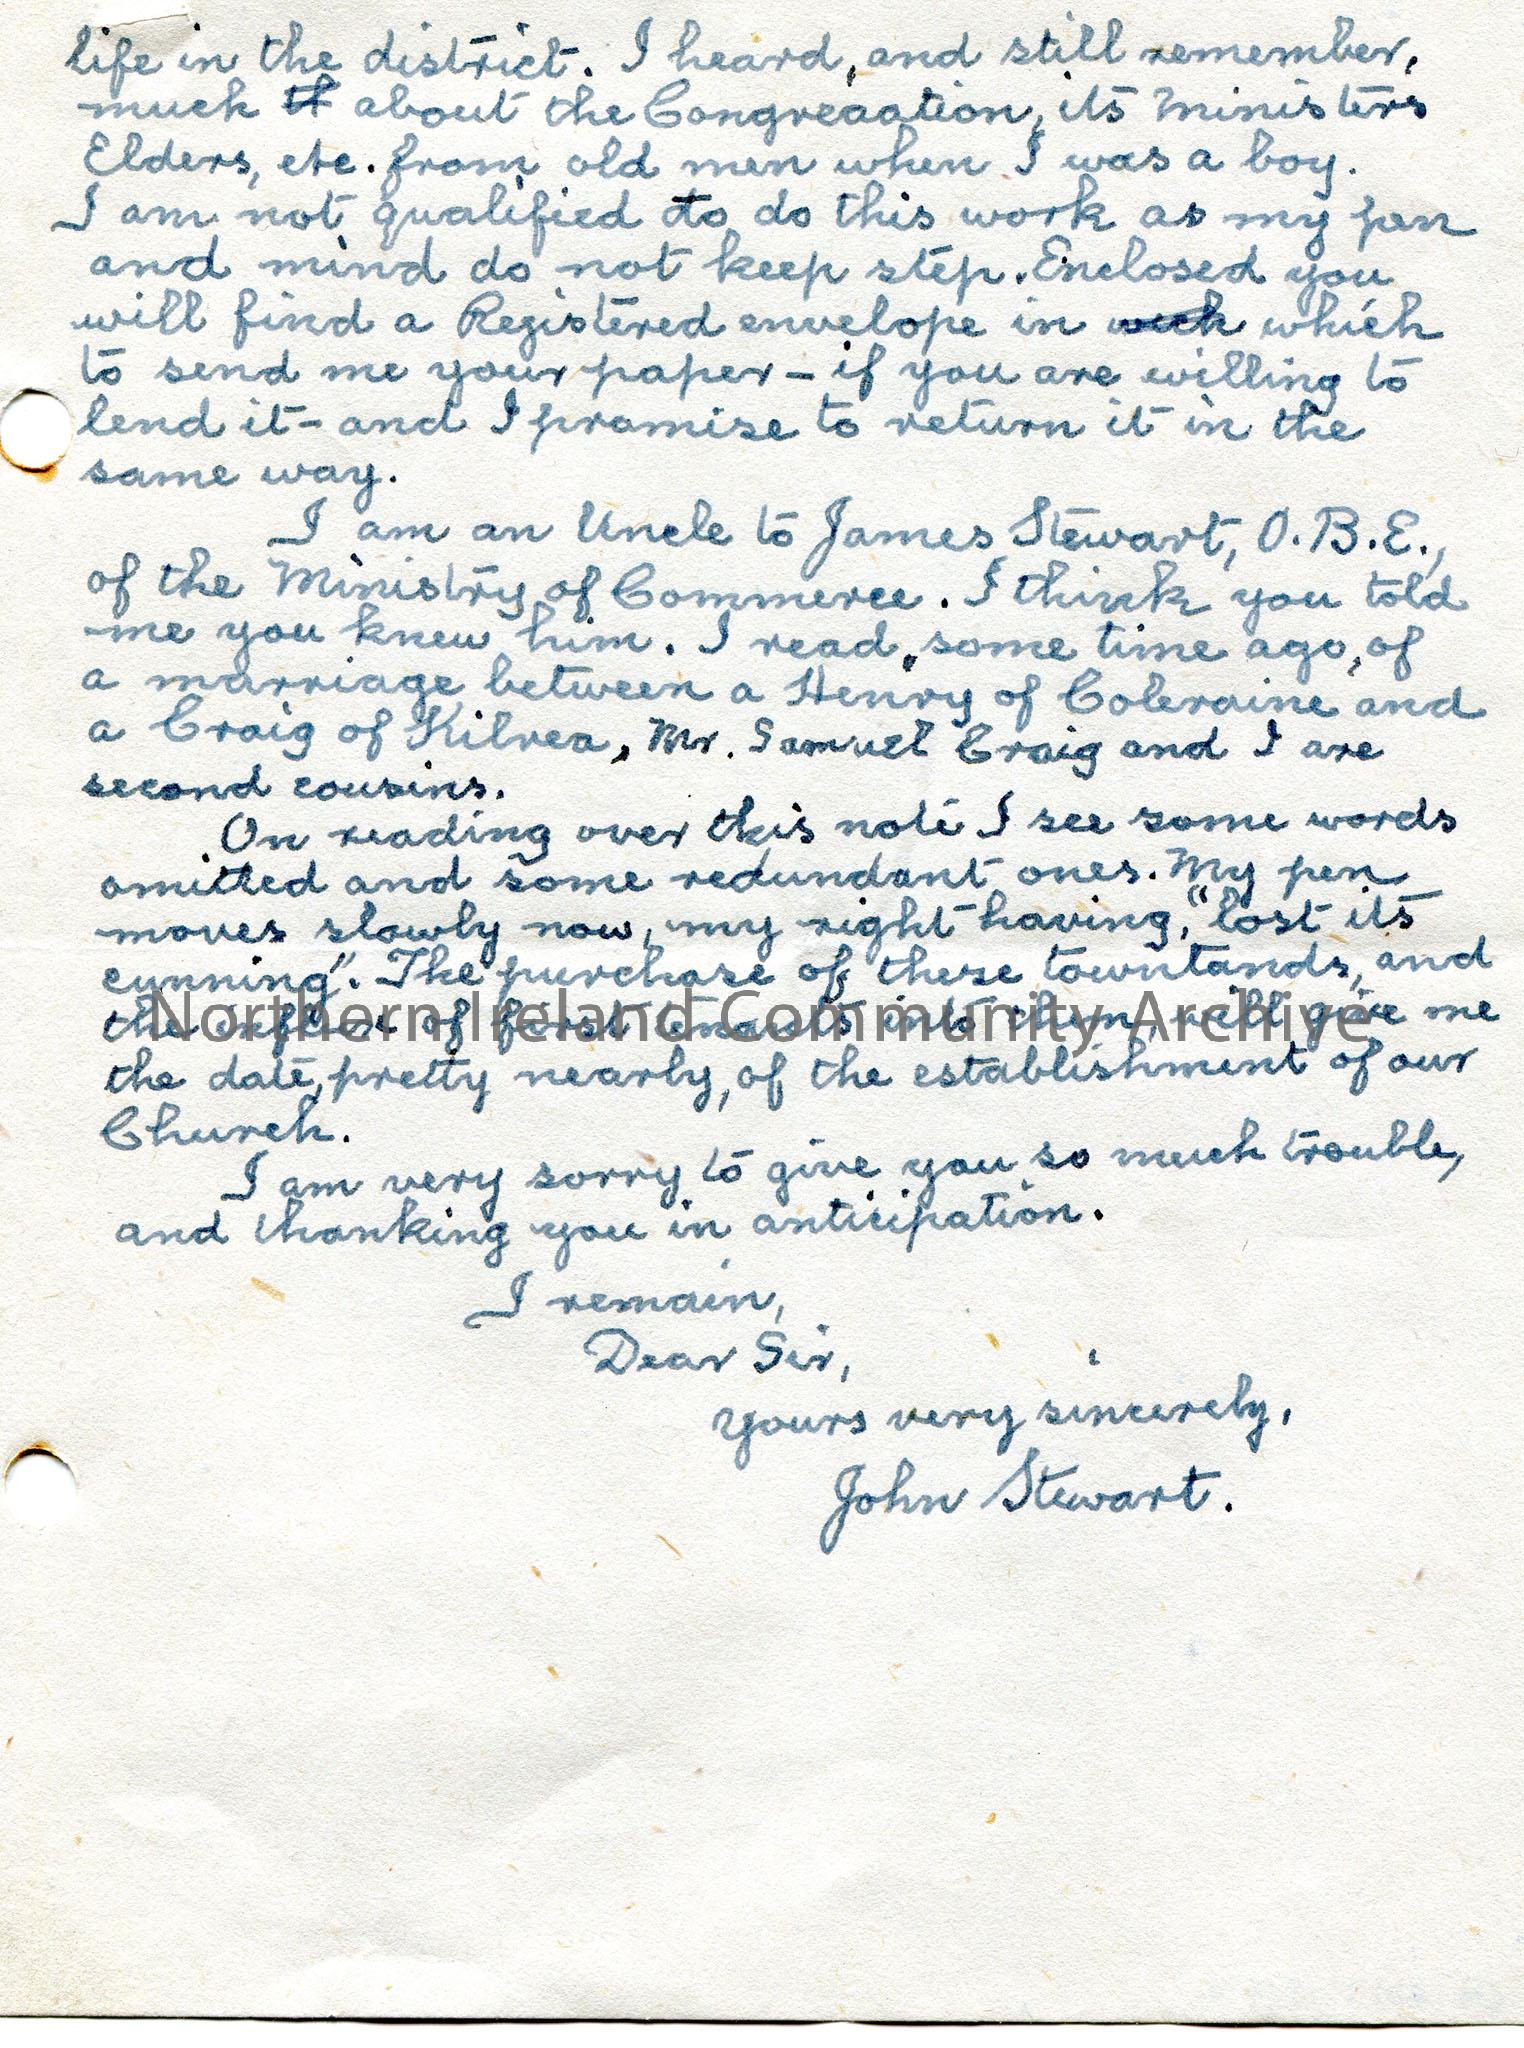 life in the district. I heard, and still remember,
much about the Congregation, its Ministers
Elders, etc. from old men when I was a boy.
I am not qualified to do this work as my pen
and mind do not keep step. Enclosed you
will find a Registered envelope in which
to send me your paper – if you are willing to
lend it – and I promise to return it in the
same way.
I am an Uncle to James Stewart, O.B.E.,
of the Ministry of Commerce. I think you told
me you knew him. I read, some time ago, of
a marriage between a Henry of Coleraine and
a Craig of Kilrea, Mr. Samuel Craig and I are
second cousins.
On reading over this note I see some words
omitted and some redundant ones. My pen
moves slowly now, my right having, "lost its
cunning". The purchase of these townlands, and
the influx of first tenants into them, will give me
Northern Ireland Community Archive
the date, pretty nearly, of the establishment of our
Church.
I am very sorry to give you so much trouble,
and thanking you in anticipation.
I remain,
Dear Sir,
yours very sincerely,
John Stewart.